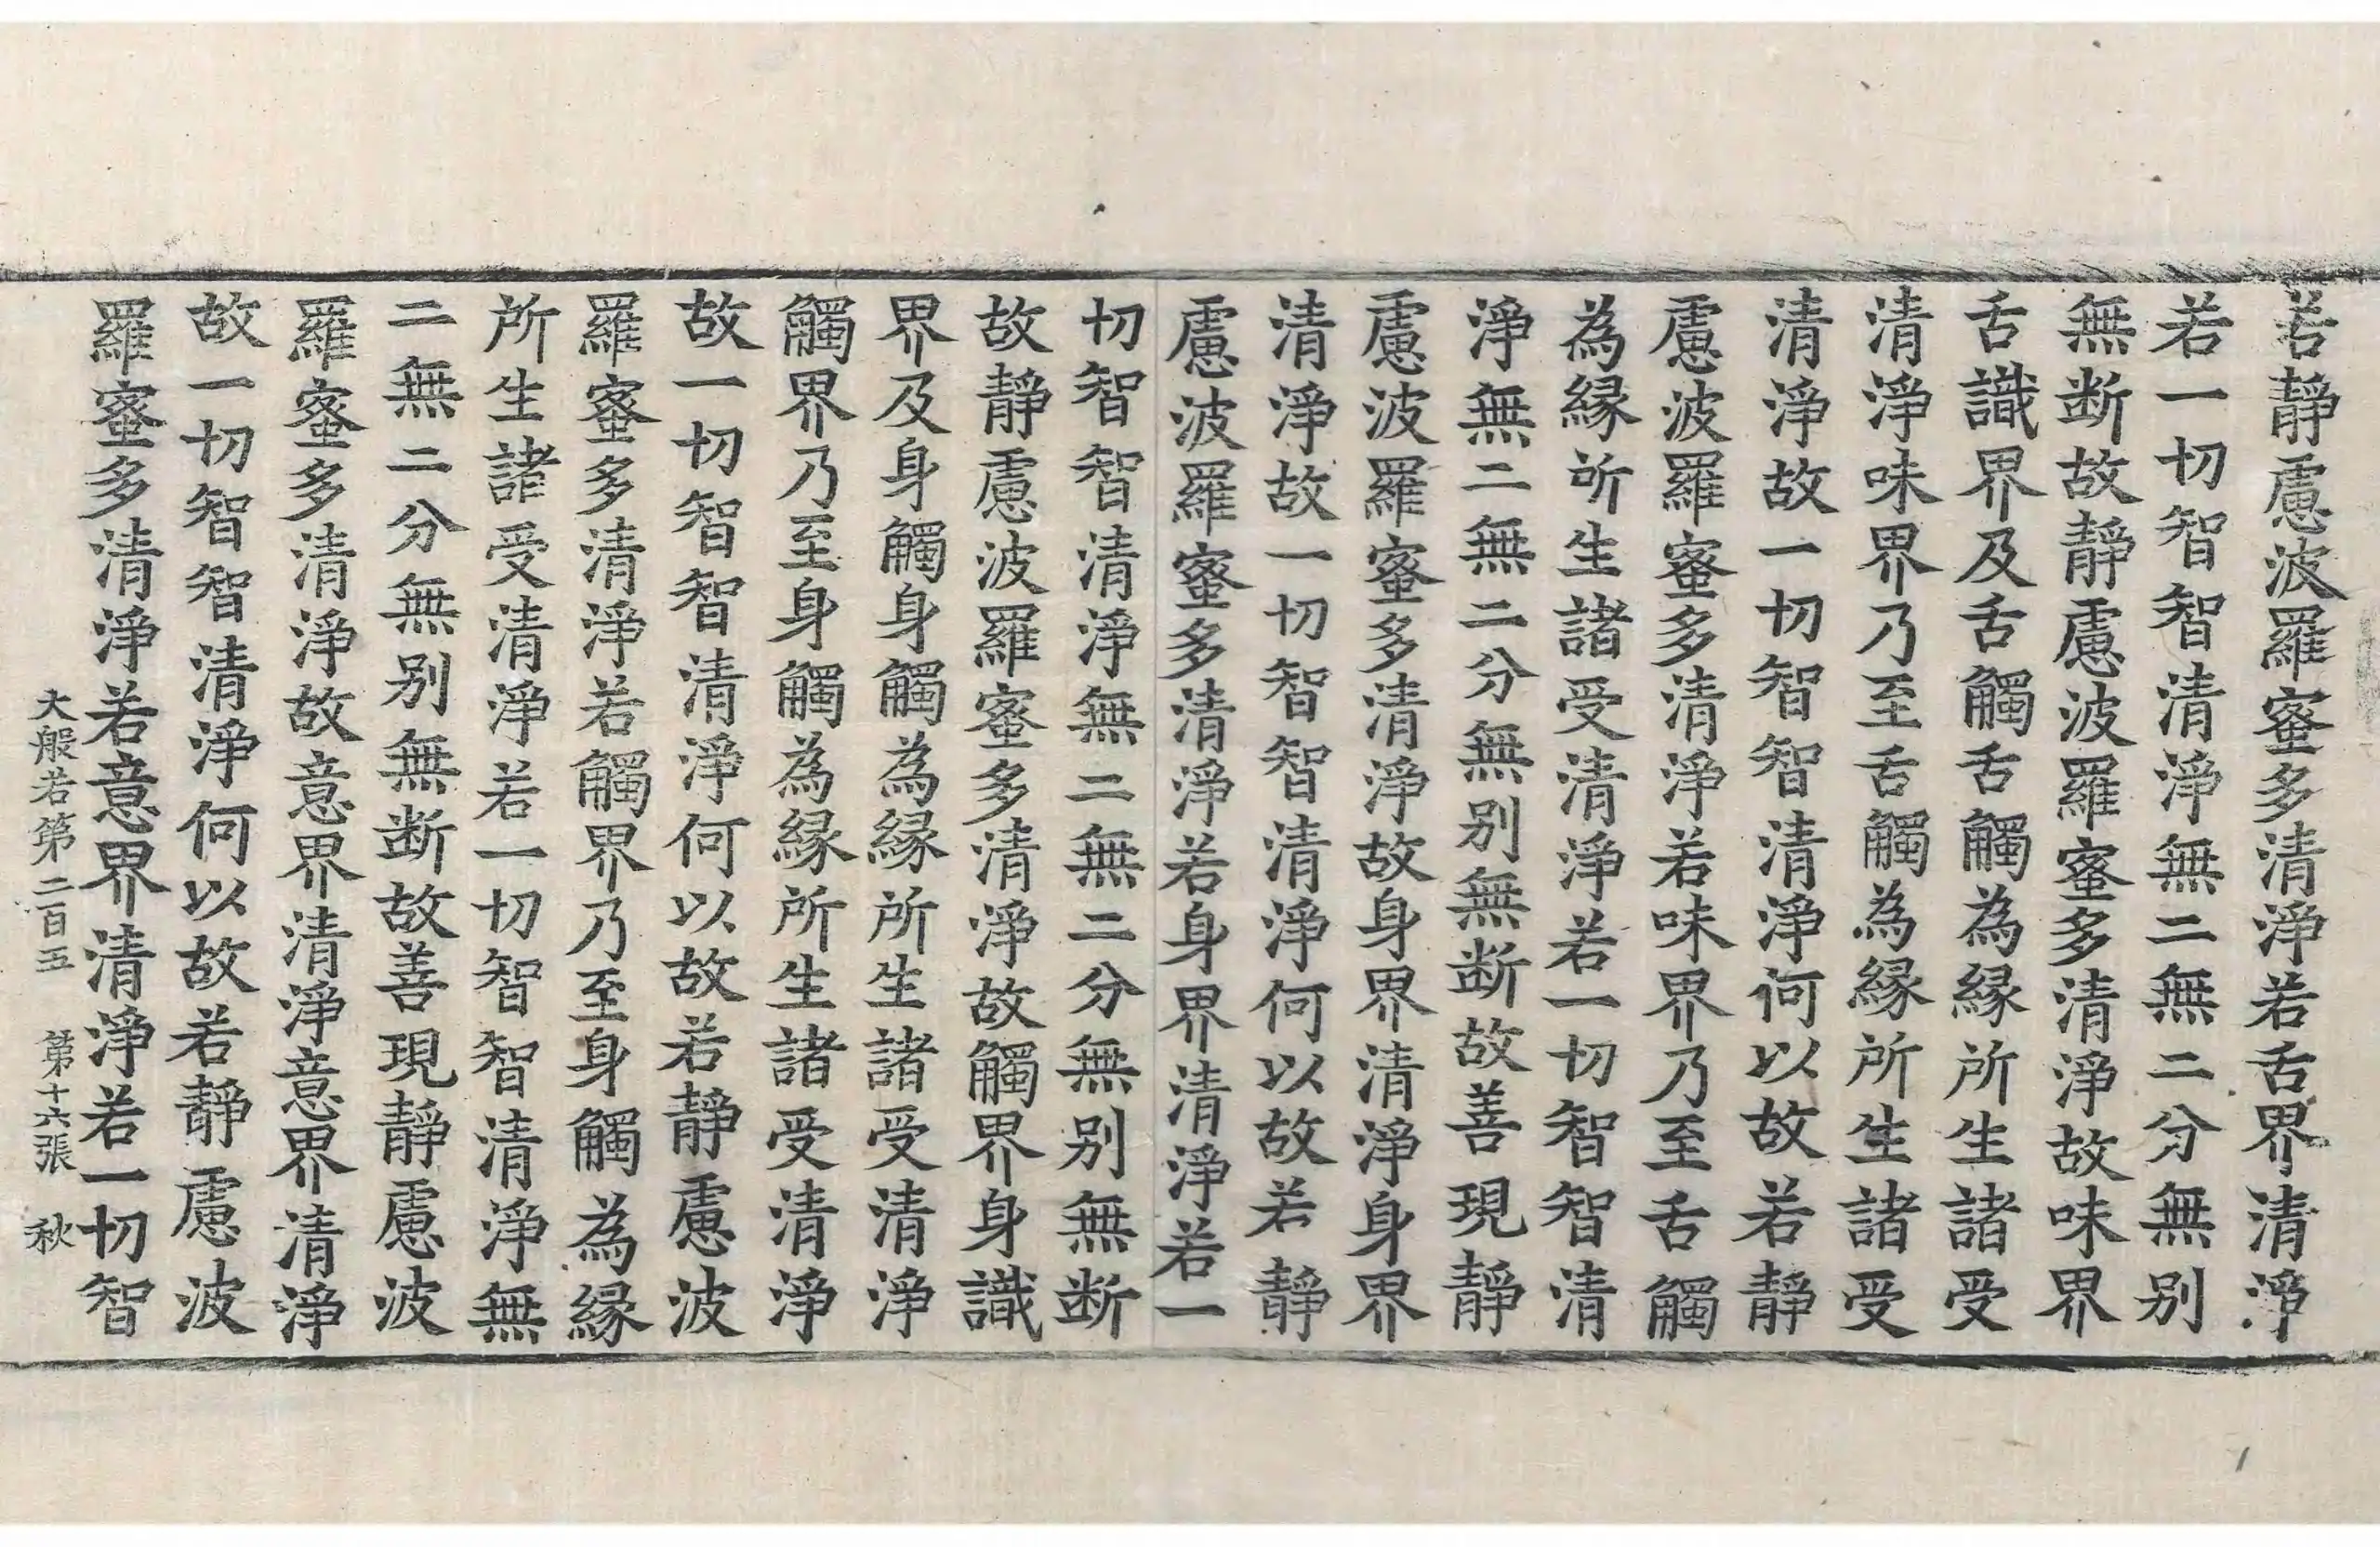 若靜慮波羅蜜多清淨若舌界清淨
若一切智智清淨無二無二分無別
無断故靜慮波羅蜜多清淨故味界
舌識界及舌觸舌觸為緣所生諸受
清淨味界乃至舌觸為緣所生諸受
清淨故一切智智清淨何以故若靜
慮波羅蜜多清淨若味界乃至舌觸
為緣所生諸受清淨若一切智智清
淨無二無二分無別無断故善現靜
慮波羅蜜多清淨故身界清淨身界
清淨故一切智智清淨何以故若靜
慮波羅蜜多清淨若身界清淨若一
切智智清淨無二無二分無別無断
故靜慮波羅蜜多清淨故觸界身識
界及身觸身觸為緣所生諸受清淨
觸界乃至身觸為緣所生諸受清淨
故一切智智清淨何以故若靜慮波
羅蜜多清淨若觸界乃至身觸為緣
所生諸受清淨若一切智智清淨無
二無二分無別無断故善現靜慮波
羅蜜多清淨故意界清淨意界清淨
故一切智智清淨何以故若靜慮波
羅蜜多清淨若意界清淨若一切智
大般若第二百五 第十六張 秋